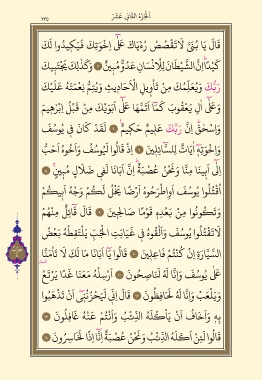 الجزء الثاني عشر
٢٣٥
قَالَ يَا بُنَيَّ لَا تَقْصُصْ رُءْيَاكَ عَلٰٓى اِخْوَتِكَ فَيَكِيدُوا لَكَ
كَيْدًاۜ اِنَّ الشَّيْطَانَ لِلْاِنْسَانِ عَدُوٌّ مُبِينٌ ۝ وَكَذٰلِكَ يَجْتَبِيكَ
رَبُّكَ وَيُعَلِّمُكَ مِنْ تَأْوِيلِ الْاَحَادِيثِ وَيُتِمُّ نِعْمَتَهُ عَلَيْكَ
وَعَلٰٓى اٰلِ يَعْقُوبَ كَمَٓا اَتَمَّهَا عَلٰٓى اَبَوَيْكَ مِنْ قَبْلُ اِبْرٰهِيمَ
وَاِسْحٰقَۜ اِنَّ رَبَّكَ عَلِيمٌ حَكِيمٌ ۝ لَقَدْ كَانَ فِي يُوسُفَ
وَاِخْوَتِهِٓ اٰيَاتٌ لِلسَّٓائِلِينَ ۝ اِذْ قَالُوا لَيُوسُفُ وَاَخُوهُ اَحَبُّ
اِلٰٓى اَبِينَا مِنَّا وَنَحْنُ عُصْبَةٌۜ اِنَّ اَبَانَا لَفِي ضَلَالٍ مُبِينٍ ۝
اُقْتُلُوا يُوسُفَ اَوِ اطْرَحُوهُ اَرْضًا يَخْلُ لَكُمْ وَجْهُ اَبِيكُمْ
وَتَكُونُوا مِنْ بَعْدِهِ قَوْمًا صَالِحِينَ ۝ قَالَ قَٓائِلٌ مِنْهُمْ
لَا تَقْتُلُوا يُوسُفَ وَاَلْقُوهُ فِي غَيَابَتِ الْجُبِّ يَلْتَقِطْهُ بَعْضُ
السَّيَّارَةِ اِنْ كُنْتُمْ فَاعِلِينَ ۝ قَالُوا يَٓا اَبَانَا مَا لَكَ لَا تَأْمَنَّا
عَلٰى يُوسُفَ وَاِنَّا لَهُ لَنَاصِحُونَ ۝ اَرْسِلْهُ مَعَنَا غَدًا يَرْتَعْ
وَيَلْعَبْ وَاِنَّا لَهُ لَحَافِظُونَ ۝ قَالَ اِنِّي لَيَحْزُنُنِٓي اَنْ تَذْهَبُوا
بِهِ وَاَخَافُ اَنْ يَأْكُلَهُ الذِّئْبُ وَاَنْتُمْ عَنْهُ غَافِلُونَ ۝
قَالُوا لَئِنْ اَكَلَهُ الذِّئْبُ وَنَحْنُ عُصْبَةٌ اِنَّٓا اِذًا لَخَاسِرُونَ ۝